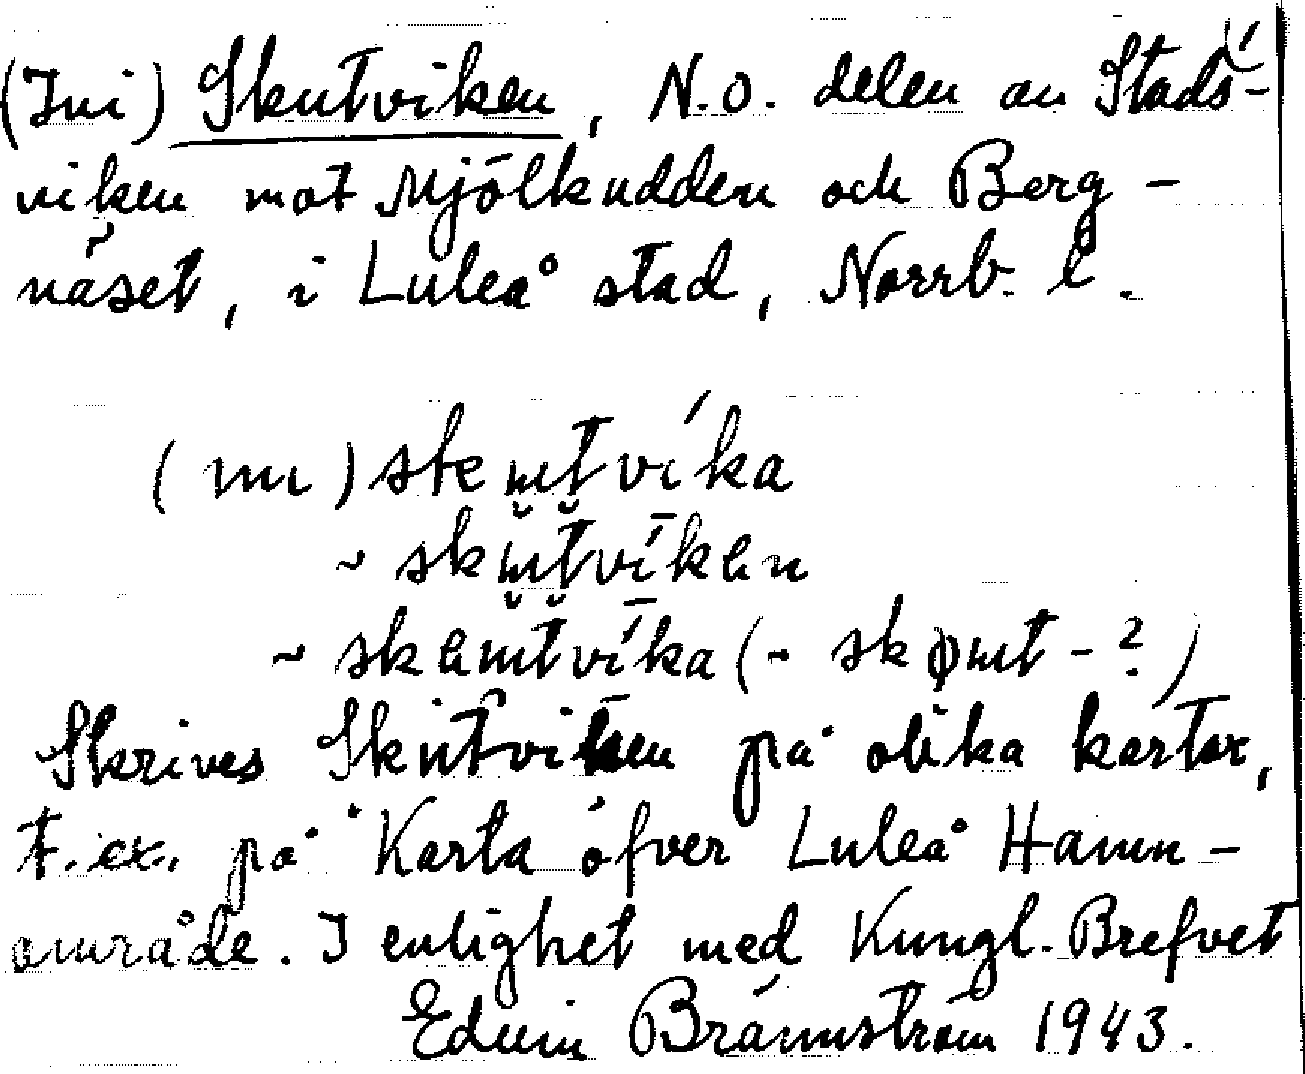 (Ini) Skutviken, N.O. delen av Stads-
viken mot Mjölkudden och Berg-
näset, i Luleå stad, Norrb. l.
~
Skrives Skutviken på olika kartor,
t.ex. på Karta öfver Luleå Hamn-
område. I enlighet med Kungl. Brefvet
Edvin Brännström 1943.